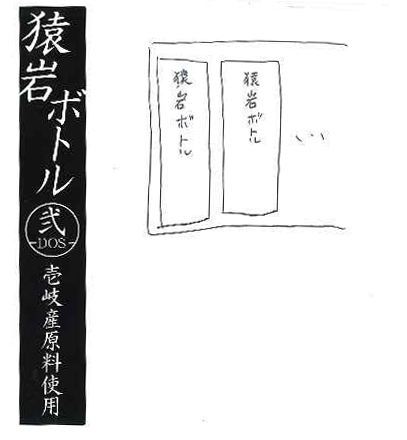 猿岩ボトル
弐
DOS
壱岐産原料使用
猿岩ボトル
猿岩ボトル